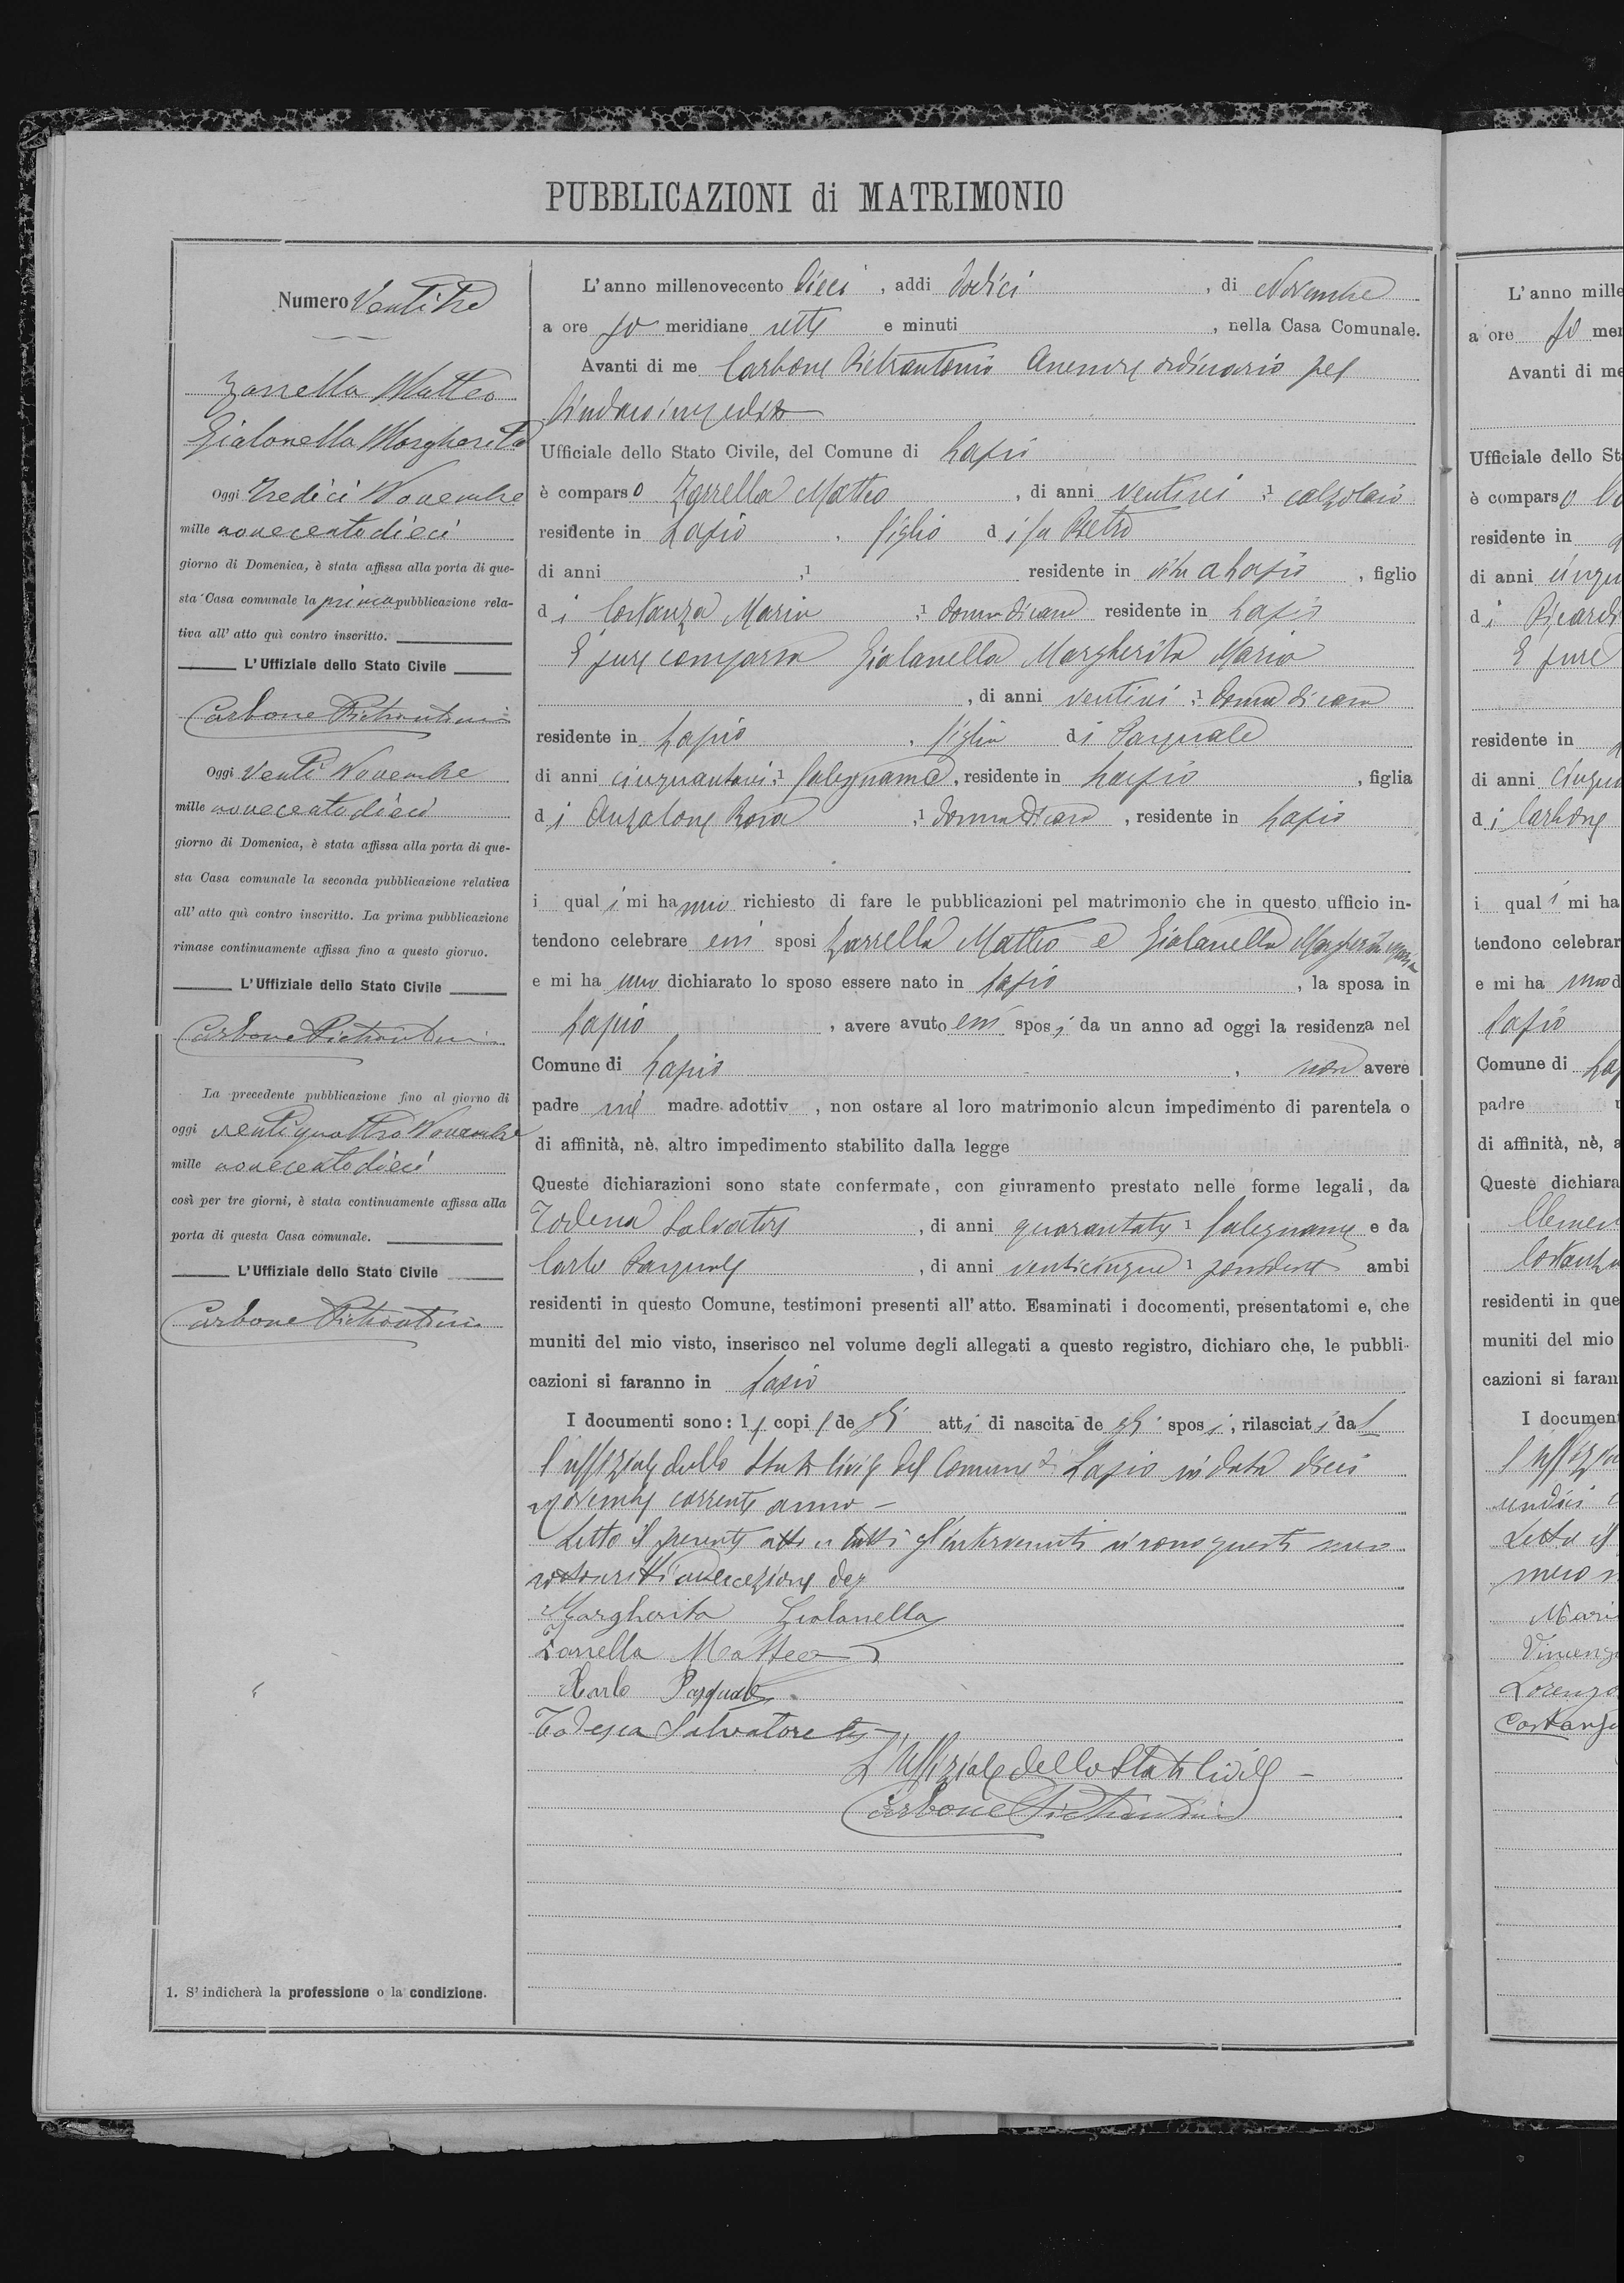 PUBBLICAZIONI di MATRIMONIO
Numero Ventitre
Zarrella Matteo
Gialanella Margherita
Oggi Tredici Novembre
mille novecentodieci
giorno di Domenica, è stata affissa alla porta di que-
sta Casa comunale la prima pubblicazione rela-
tiva all' atto quì contro inscritto.
L'Uffiziale dello Stato Civile
Carbone Pietrantonio
Oggi Venti Novembre
mille novecentodieci
giorno di Domenica, è stata affissa alla porta di que-
sta Casa comunale la seconda pubblicazione relativa
all' atto quì contro inscritto. La prima pubblicazione
rimase continuamente affissa fino a questo giorno.
L'Uffiziale dello Stato Civile
Carbone Pietrantonio
La precedente pubblicazione fino al giorno di
oggi ventiquattro Novembre
mille novecentodieci
così per tre giorni, è stata continuamente affissa alla
porta di questa Casa comunale.
L'Uffiziale dello Stato Civile
Carbone Pietrantonio
1. S' indicherà la professione o la condizione.
L'anno millenovecento dieci, addi dodici, di Novembre
a ore meridiane sette e minuti, nella Casa Comunale.
Avanti di me Carbone Pietrantonio Assessore ordinario pel
Sindaco impedito
Ufficiale dello Stato Civile, del Comune di Lapio
è comparso Zarrella Matteo, di anni ventisei, 1 calzolaio
residente in Lapio, figlio di fu Pietro
di anni ,1 residente in vita a Lapio, figlio
di Costanza Maria 1 donna di casa residente in Lapio
E pure comparsa Gialanella Margherita Maria
, di anni ventisei, 1 donna di casa
residente in Lapio, figlia di Pasquale
di anni cinquantasei, 1 falegname, residente in Lapio, figlia
di Anzalone Rosa ,1 donna di casa, residente in Lapio
i quali mi hanno richiesto di fare le pubblicazioni pel matrimonio che in questo ufficio in-
tendono celebrare essi sposi Zarrella Matteo e Gialanella Margherita Maria
e mi hanno dichiarato lo sposo essere nato in Lapio, la sposa in
Lapio, avere avuto essi sposi da un anno ad oggi la residenza nel
Comune di Lapio, non avere
padre nè madre adottiv , non ostare al loro matrimonio alcun impedimento di parentela o
di affinità, nè, altro impedimento stabilito dalla legge
Queste dichiarazioni sono state confermate, con giuramento prestato nelle forme legali, da
Todesca Salvatore, di anni 1 falegname e da
Carlo Pasquale, di anni venticinque 1 possidente ambi
residenti in questo Comune, testimoni presenti all' atto. Esaminati i docomenti, presentatomi e, che
muniti del mio visto, inserisco nel volume degli allegati a questo registro, dichiaro che, le pubbli-
cazioni si faranno in Lapio
I documenti sono: le copie degli atti di nascita degli sposi, rilasciati dal
l'uffiziale dello Stato Civile del Comune di Lapio in data dieci
Novembre corrente anno -
Letto il presente atto a tutti gl'intervenuti si sono questi meco
sottoscritti
Margherita Gialanella
Zarrella Matteo
Carlo Pasquale
Todesca Salvatore
L'Uffiziale dello Stato Civile -
Carbone Pietrantonio
L'anno mille
a ore mer
Avanti di me
Ufficiale dello St
è comparso
residente in
di anni
di Picardi
E pure
residente in
di anni
di Carbone
i quali mi ha
tendono celebrar
e mi hanno d
Lapio
Comune di Lap
padre
di affinità, nè, a
Queste dichiara
Clemen
Costanza
residenti in que
muniti del mio
cazioni si faran
I document
l'uffizia
undici
Letto il
meco
Mari
Vincenz
Lorenzo
Costanza